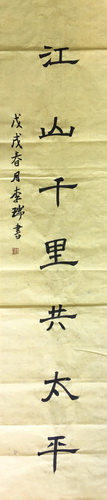 江山千里共太平
戊戌春月李瑞書